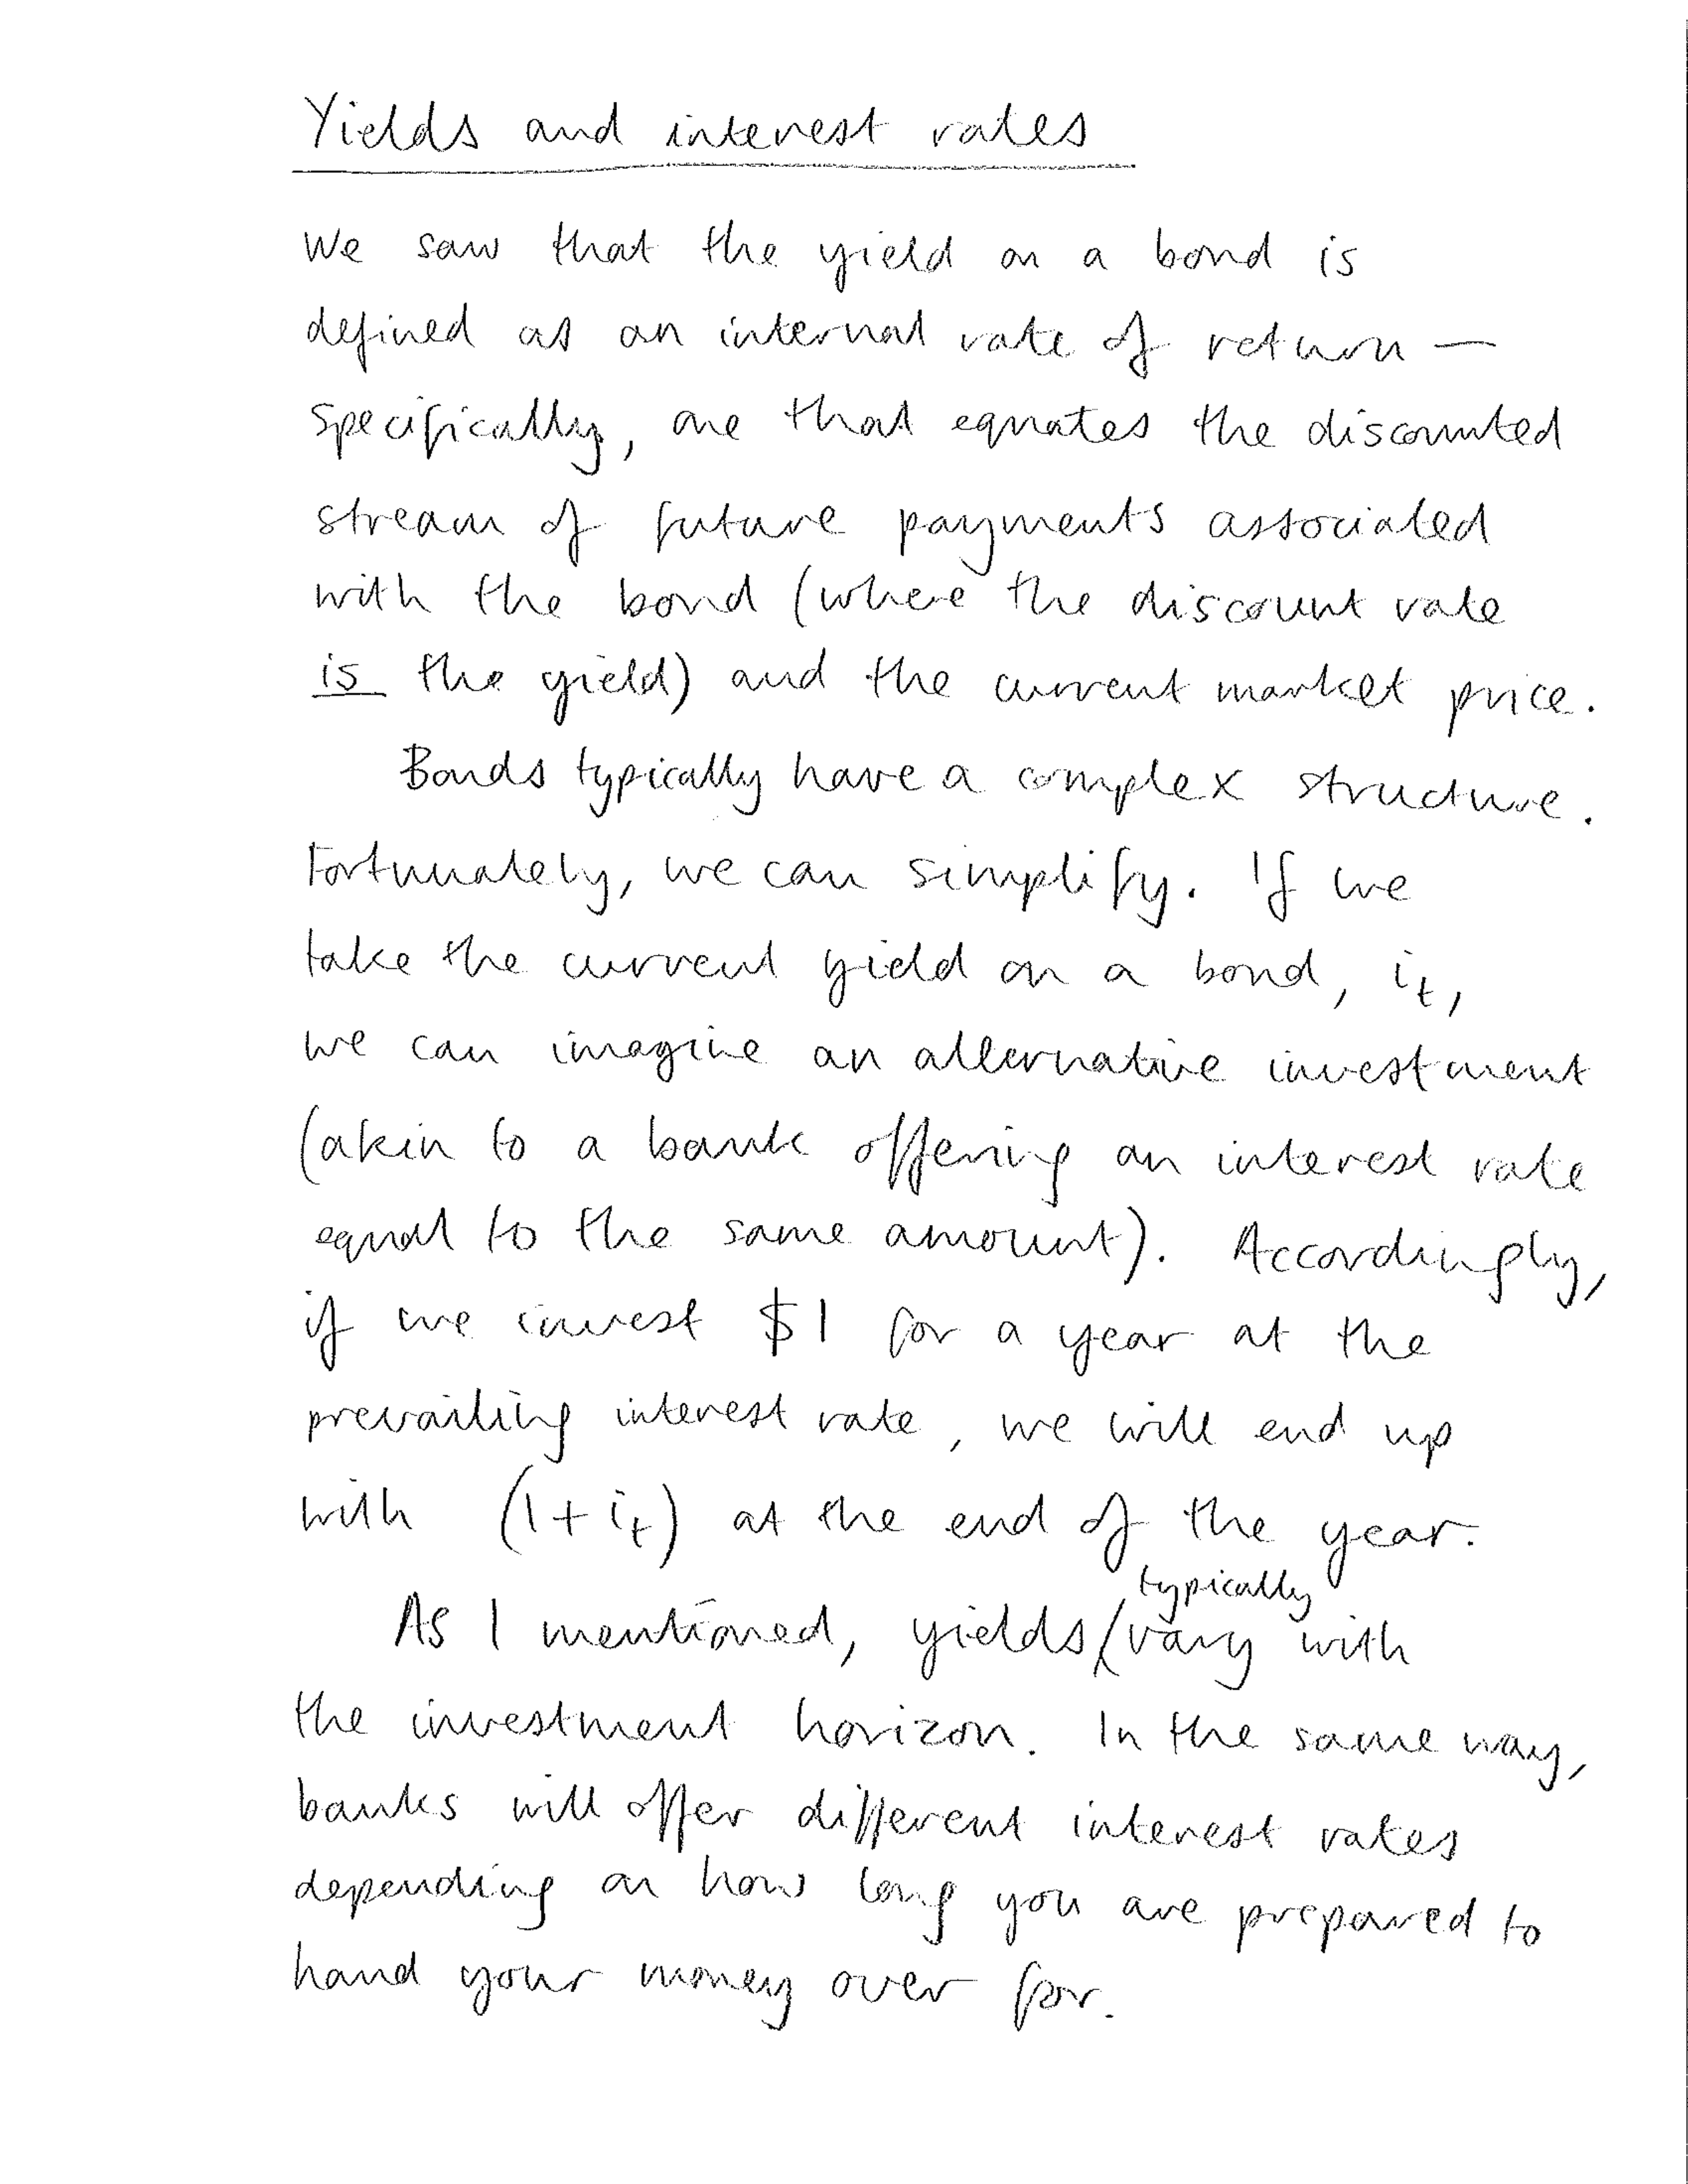 Yields and interest rates
We saw that the yield on a bond is
defined as an internal rate of return —
specifically, one that equates the discounted
stream of future payments associated
with the bond (where the discount rate
is the yield) and the current market price.
Bonds typically have a complex structure.
Fortunately, we can simplify. If we
take the current yield on a bond, iₜ,
we can imagine an alternative investment
(akin to a bank offering an interest rate
equal to the same amount). Accordingly,
if we invest $1 for a year at the
prevailing interest rate, we will end up
with (1 + iₜ) at the end of the year.
typically
As I mentioned, yields vary with
the investment horizon. In the same way,
banks will offer different interest rates
depending on how long you are prepared to
hand your money over for.